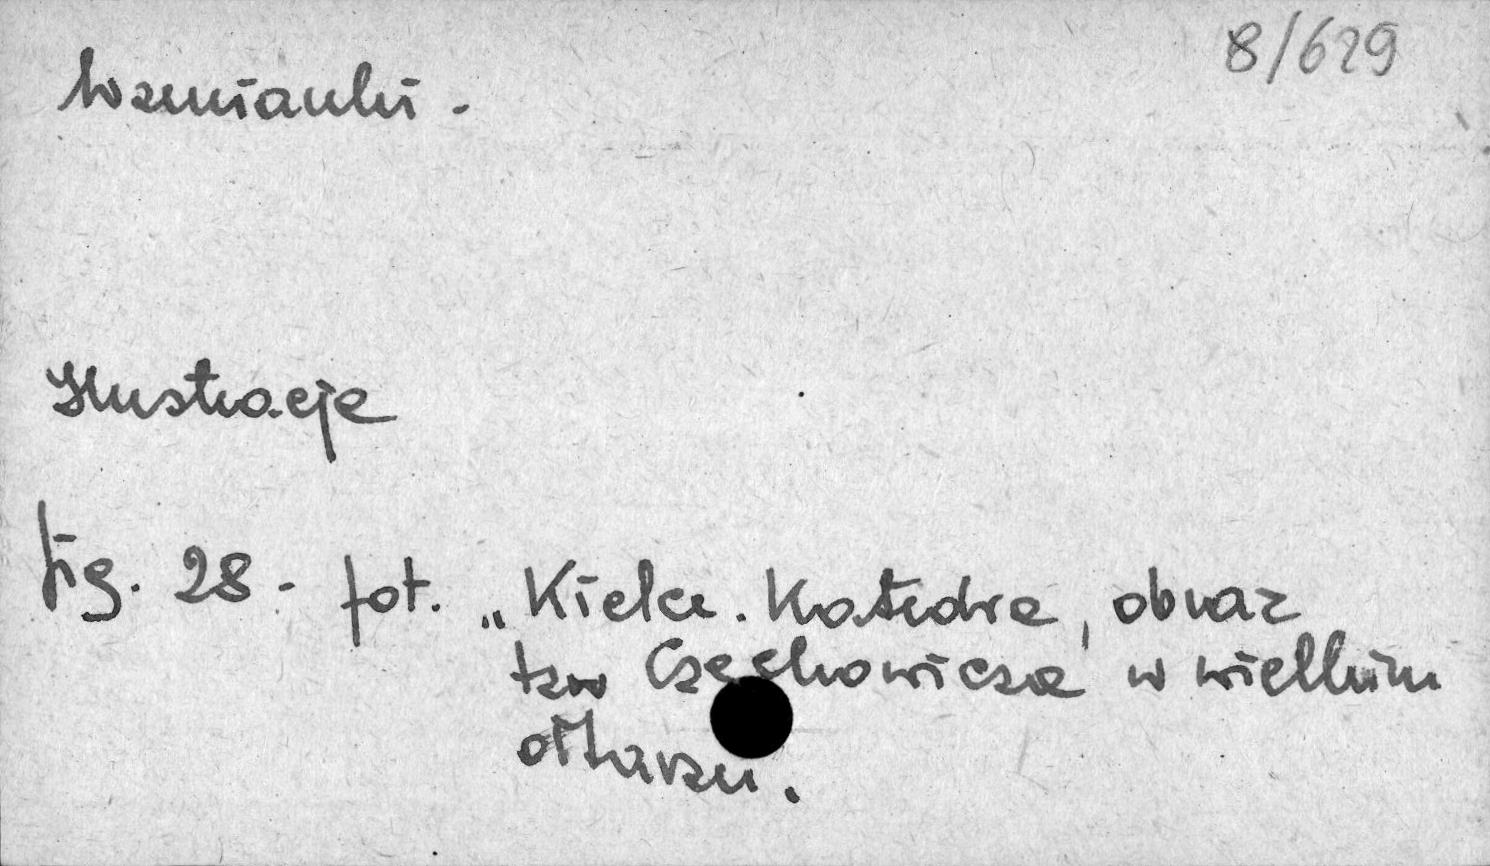 8/629
Wzmianki -
Ilustracje
fig. 28 - fot. „Kielce. Katedra, obraz
tzw Czechowicza w wielkim
ołtarzu.